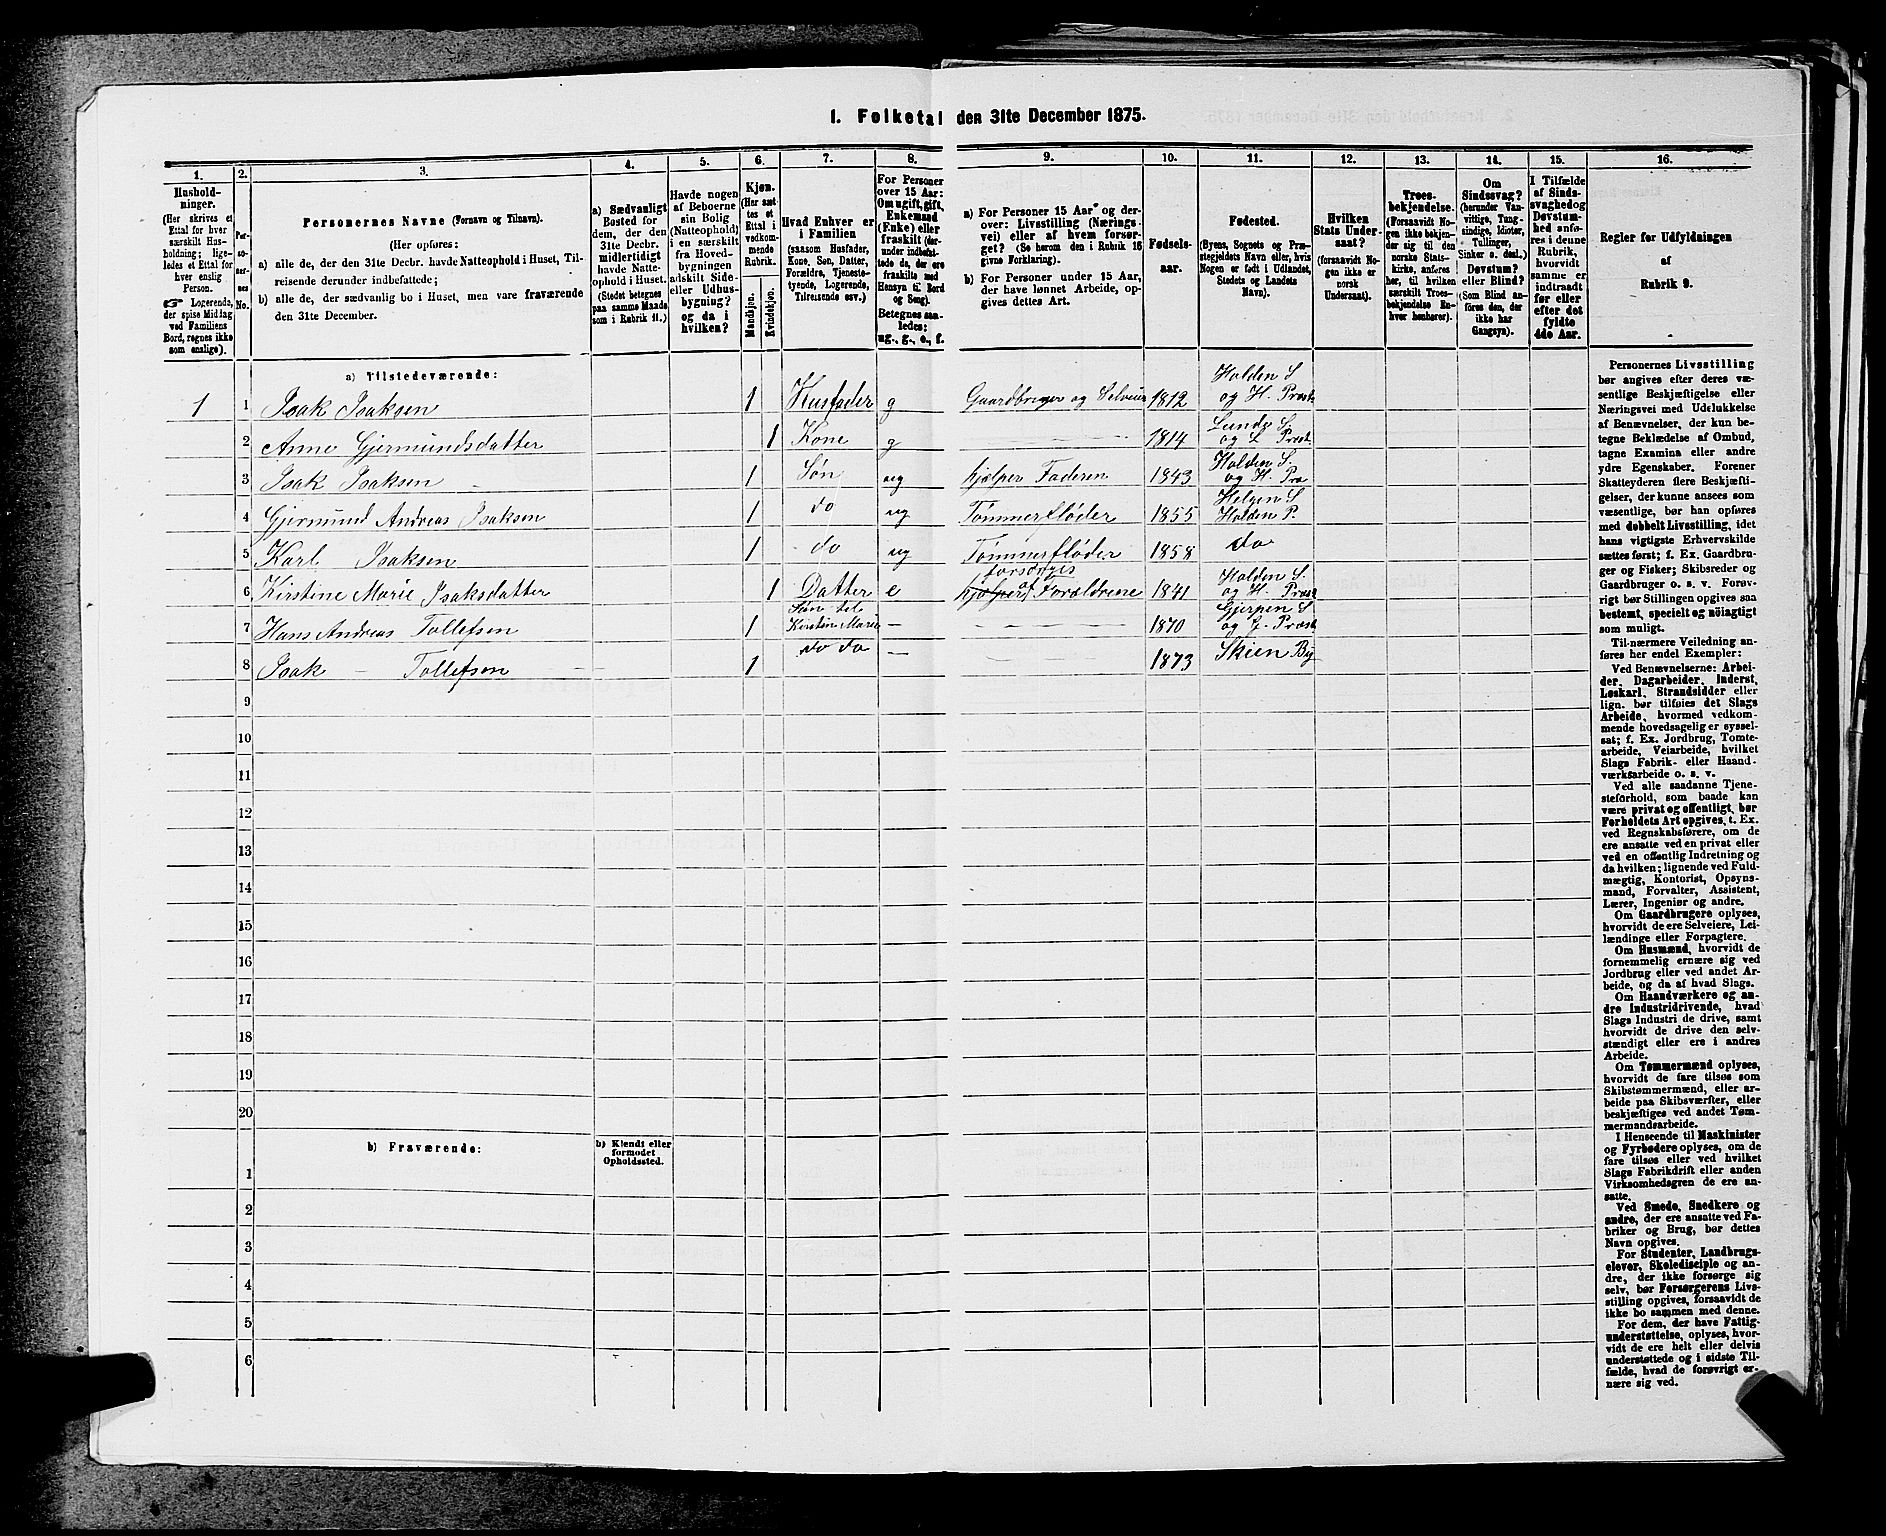 1. Folketal den 31te December 1875.
1.
Hushold-
ninger.
(Her skrives et
Ettal for hver
særskilt Hus-
holdning; lige-
ledes et Ettal for
hver enslig
Person.
☞ Logerende,
der spise Middag
ved Familiens
Bord, regnes ikke
som enslige).
2.
Per-
so-
ner-
nes
No.
3.
Personernes Navne (Fornavn og Tilnavn).
(Her opføres:
a) alle de, der den 31te Decbr. havde Natteophold i Huset, Til-
reisende derunder indbefattede;
b) alle de, der sædvanlig bo i Huset, men vare fraværende
den 31te December.
4.
a) Sædvanligt
Bosted for
dem, der den
31te Decbr.
midlertidigt
havde Natte-
ophold i Huset.
(Stedet betegnes
paa samme Maade
som i Rubrik 11.)
5.
Havde nogen
af Beboerne
sin Bolig
(Natteophold)
i en særskilt
fra Hoved-
bygningen
adskilt Side-
eller Udhus-
bygning?
og da i
hvilken?
6.
Kjøn.
(Her sæt-
tes et
Ettal i
vedkom-
mende
Rubrik.
Mandkjøn.
Kvindekjøn.
7.
Hvad Enhver er
i Familien
(saasom Husfader,
Kone, Søn, Datter,
Forældre, Tjeneste-
tyende, Logerende,
Tilreisende osv.)
8.
For Personer
over 15 Aar:
Om ugift, gift,
Enkemand
(Enke) eller
fraskilt (der-
under indbefat-
tede da, der ere
fraskilte med
Hensyn til Bord
og Seng).
Betegnes saa-
ledes:
ug., g., e., f.
9.
a) For Personer 15 Aar og der-
over: Livsstilling (Nærings-
vei) eller af hvem forsør-
get? (Se herom den i Rubrik 16
givne Forklaring).
b) For Personer under 15 Aar,
der have lønnet Arbeide, op-
gives dettes Art.
10.
Fødsels-
aar.
11.
Fødested.
(Byens, Sognets og Præ-
stegjeldets Navn eller, hvis
Nogen er født i Udlandet,
Stedets og Landets
Navn).
12.
Hvilken
Stats Under-
saat?
(forsaavidt No-
gen ikke er
norsk
Undersaat).
13.
Troes-
bekjendelse.
(Forsaavidt No-
gen ikke bekjen-
der sig til den
norske Stats-
kirke, anføres
her, til hvilken
særskilt Troes-
bekjendelse En-
hver henhører).
14.
Om
Sindssvag?
(herunder Van-
vittige, Tung-
sindige, Idioter,
Tullinger,
Sinker o. desl.)
Døvstum?
eller Blind?
(Som Blind an-
føres den, der
ikke har
Gangsyn).
15.
I Tilfælde
af Sinds-
svaghed og
Døvstum-
hed anfø-
res i denne
Rubrik,
hvorvidt
samme er
indtraadt
før eller
efter det
fyldte
4de Aar.
16.
Regler for Udfyldningen
af
Rubrik 9.
a) Tilstedeværende:
1 1 Isak Isaksen 1 Husfader g Gaardbruger og Selveier 1812 Holden S. og H. Præst
2 Anne Gjermundsdatter 1 Kone g — 1814 Lunde S. og L Præst.
3 Isak Isaksen 1 Søn ug hjælper Faderen 1843 Holden S. og H. Præ
4 Gjermund Andreas Isaksen 1 do ug Tømmerfløder 1855 Helgen S Holden P.
5 Karl Isaksen 1 do ug Tømmerfløder 1858 do
6 Kirstine Marie Isaksdatter 1 Datter e hjelper forsørges af Forældrene 1841 Holden S. og H. Præst
7 Hans Andreas Tollefsen 1 Søn til Kirstine Marie — — 1870 Gjerpen S og G. Præst
8 Isak — Tollefsen 1 do do — — 1873 Skien By
9
10
11
12
13
14
15
16
17
18
19
20
b) Fraværende:
b) Kjendt eller
formodet
Opholdssted.
1
2
3
4
5
6
Personernes Livsstilling
bør angives efter deres væ-
sentlige Beskjæftigelse eller
Næringsvei med Udelukkelse
af Benævnelser, der kun be-
tegne Beklædelse af Ombud,
tagne Examina eller andre
ydre Egenskaber. Forener
Skatteyderen flere Beskjæfti-
gelser, der kunne ansees som
væsentlige, bør han opføres
med dobbelt Livsstilling, idet
hans vigtigste Erhvervskilde
sættes først; f. Ex. Gaardbru-
ger og Fisker; Skibsreder og
Gaardbruger o. s. v. Forøv-
rigt bør Stillingen opgives saa
bestemt, specielt og nøiagtigt
som muligt.
Til nærmere Veiledning an-
føres her endel Exempler:
Ved Benævnelserne: Arbei-
der, Dagarbeider, Inderst,
Løskarl, Strandsidder eller
lign. bør tilføies det Slags
Arbeide, hvormed vedkom-
mende hovedsagelig er syssel-
sat; f. Ex. Jordbrug, Tomte-
arbeide, Veiarbeide, hvilket
Slags Fabrik- eller Haand-
værksarbeide o. s. v.
Ved alle saadanne Tjene-
steforhold, som baade kan
være privat og offentligt, bør
Forholdets Art opgives, t. Ex.
ved Regnskabsførere, om de
ere ansatte ved en privat eller
ved en offentlig Indretning og
da hvilken; lignende ved Fuld-
mægtig, Kontorist, Opsyns-
mand, Forvalter, Assistent,
Lærer, Ingeniør og andre.
Om Gaardbrugere oplyses,
hvorvidt de ere Selveiere, Lei-
lændinge eller Forpagtere.
Om Husmænd, hvorvidt de
fornemmelig ernære sig ved
Jordbrug eller ved andet Ar-
beide, og da af hvad Slags.
Om Haandværkere og an-
dre Industridrivende, hvad
Slags Industri de drive, samt
hvorvidt de drive den selv-
stændigt eller ere i andres
Arbeide.
Om Tømmermænd oplyses,
hvorvidt de fare tilsøs som
Skibstømmermænd, eller ar-
beide paa Skibsværfter, eller
beskjæftiges ved andet Tøm-
mermandsarbeide.
I Henseende til Maskinister
og Fyrbødere oplyses, om de
fare tilsøs eller ved hvilket
Slags Fabrikdrift eller anden
Virksomhedsgren de ere an-
satte.
Ved Smede, Snedkere og
andre, der ere ansatte ved Fa-
briker og Brug, bør dettes
Navn opgives.
For Studenter, Landbrugs-
elever, Skoledisciple og an-
dre, der ikke forsørge sig
selv, bør Forsørgerens Livs-
stilling opgives, forsaavidt de
ikke bo sammen med denne.
For dem, der have Fattig-
understøttelse, oplyses, hvor-
vidt de ere helt eller delvis
understøttede og i sidste Til-
fælde, hvad de forøvrigt er-
nære sig ved.